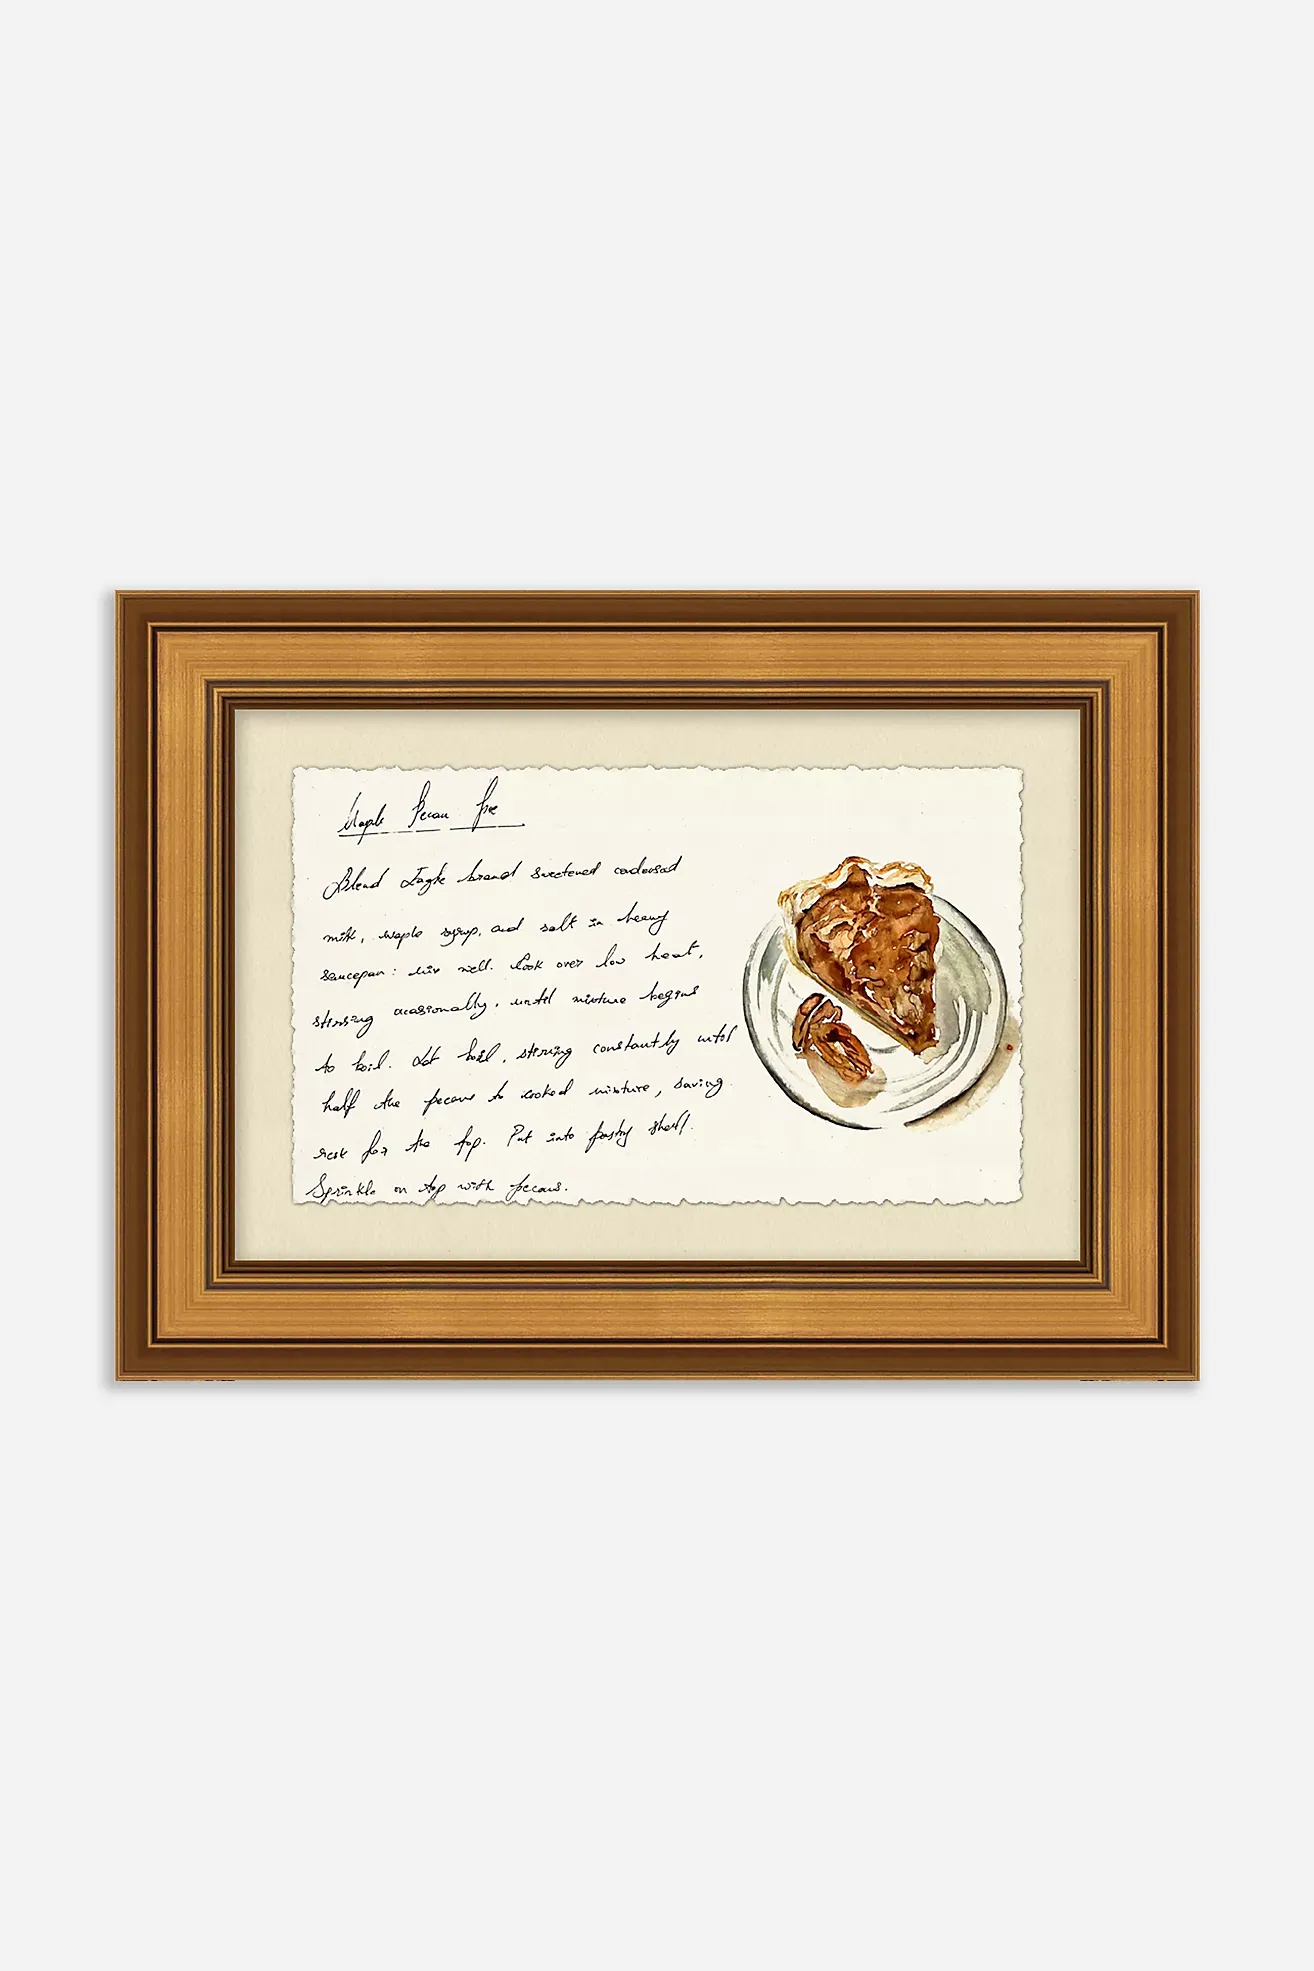 Maple Pecan Pie
Blend Eagle brand sweetened codensed
milk, maple syrup, and salt in heavy
saucepan: mix well. Cook over low heat,
stirring ocasionally, until mixture begins
to boil. Let boil, stirring constantly until
half the pecans to cooked mixture, saving
rest for the top. Put into pastry shell.
Sprinkle on top with pecans.